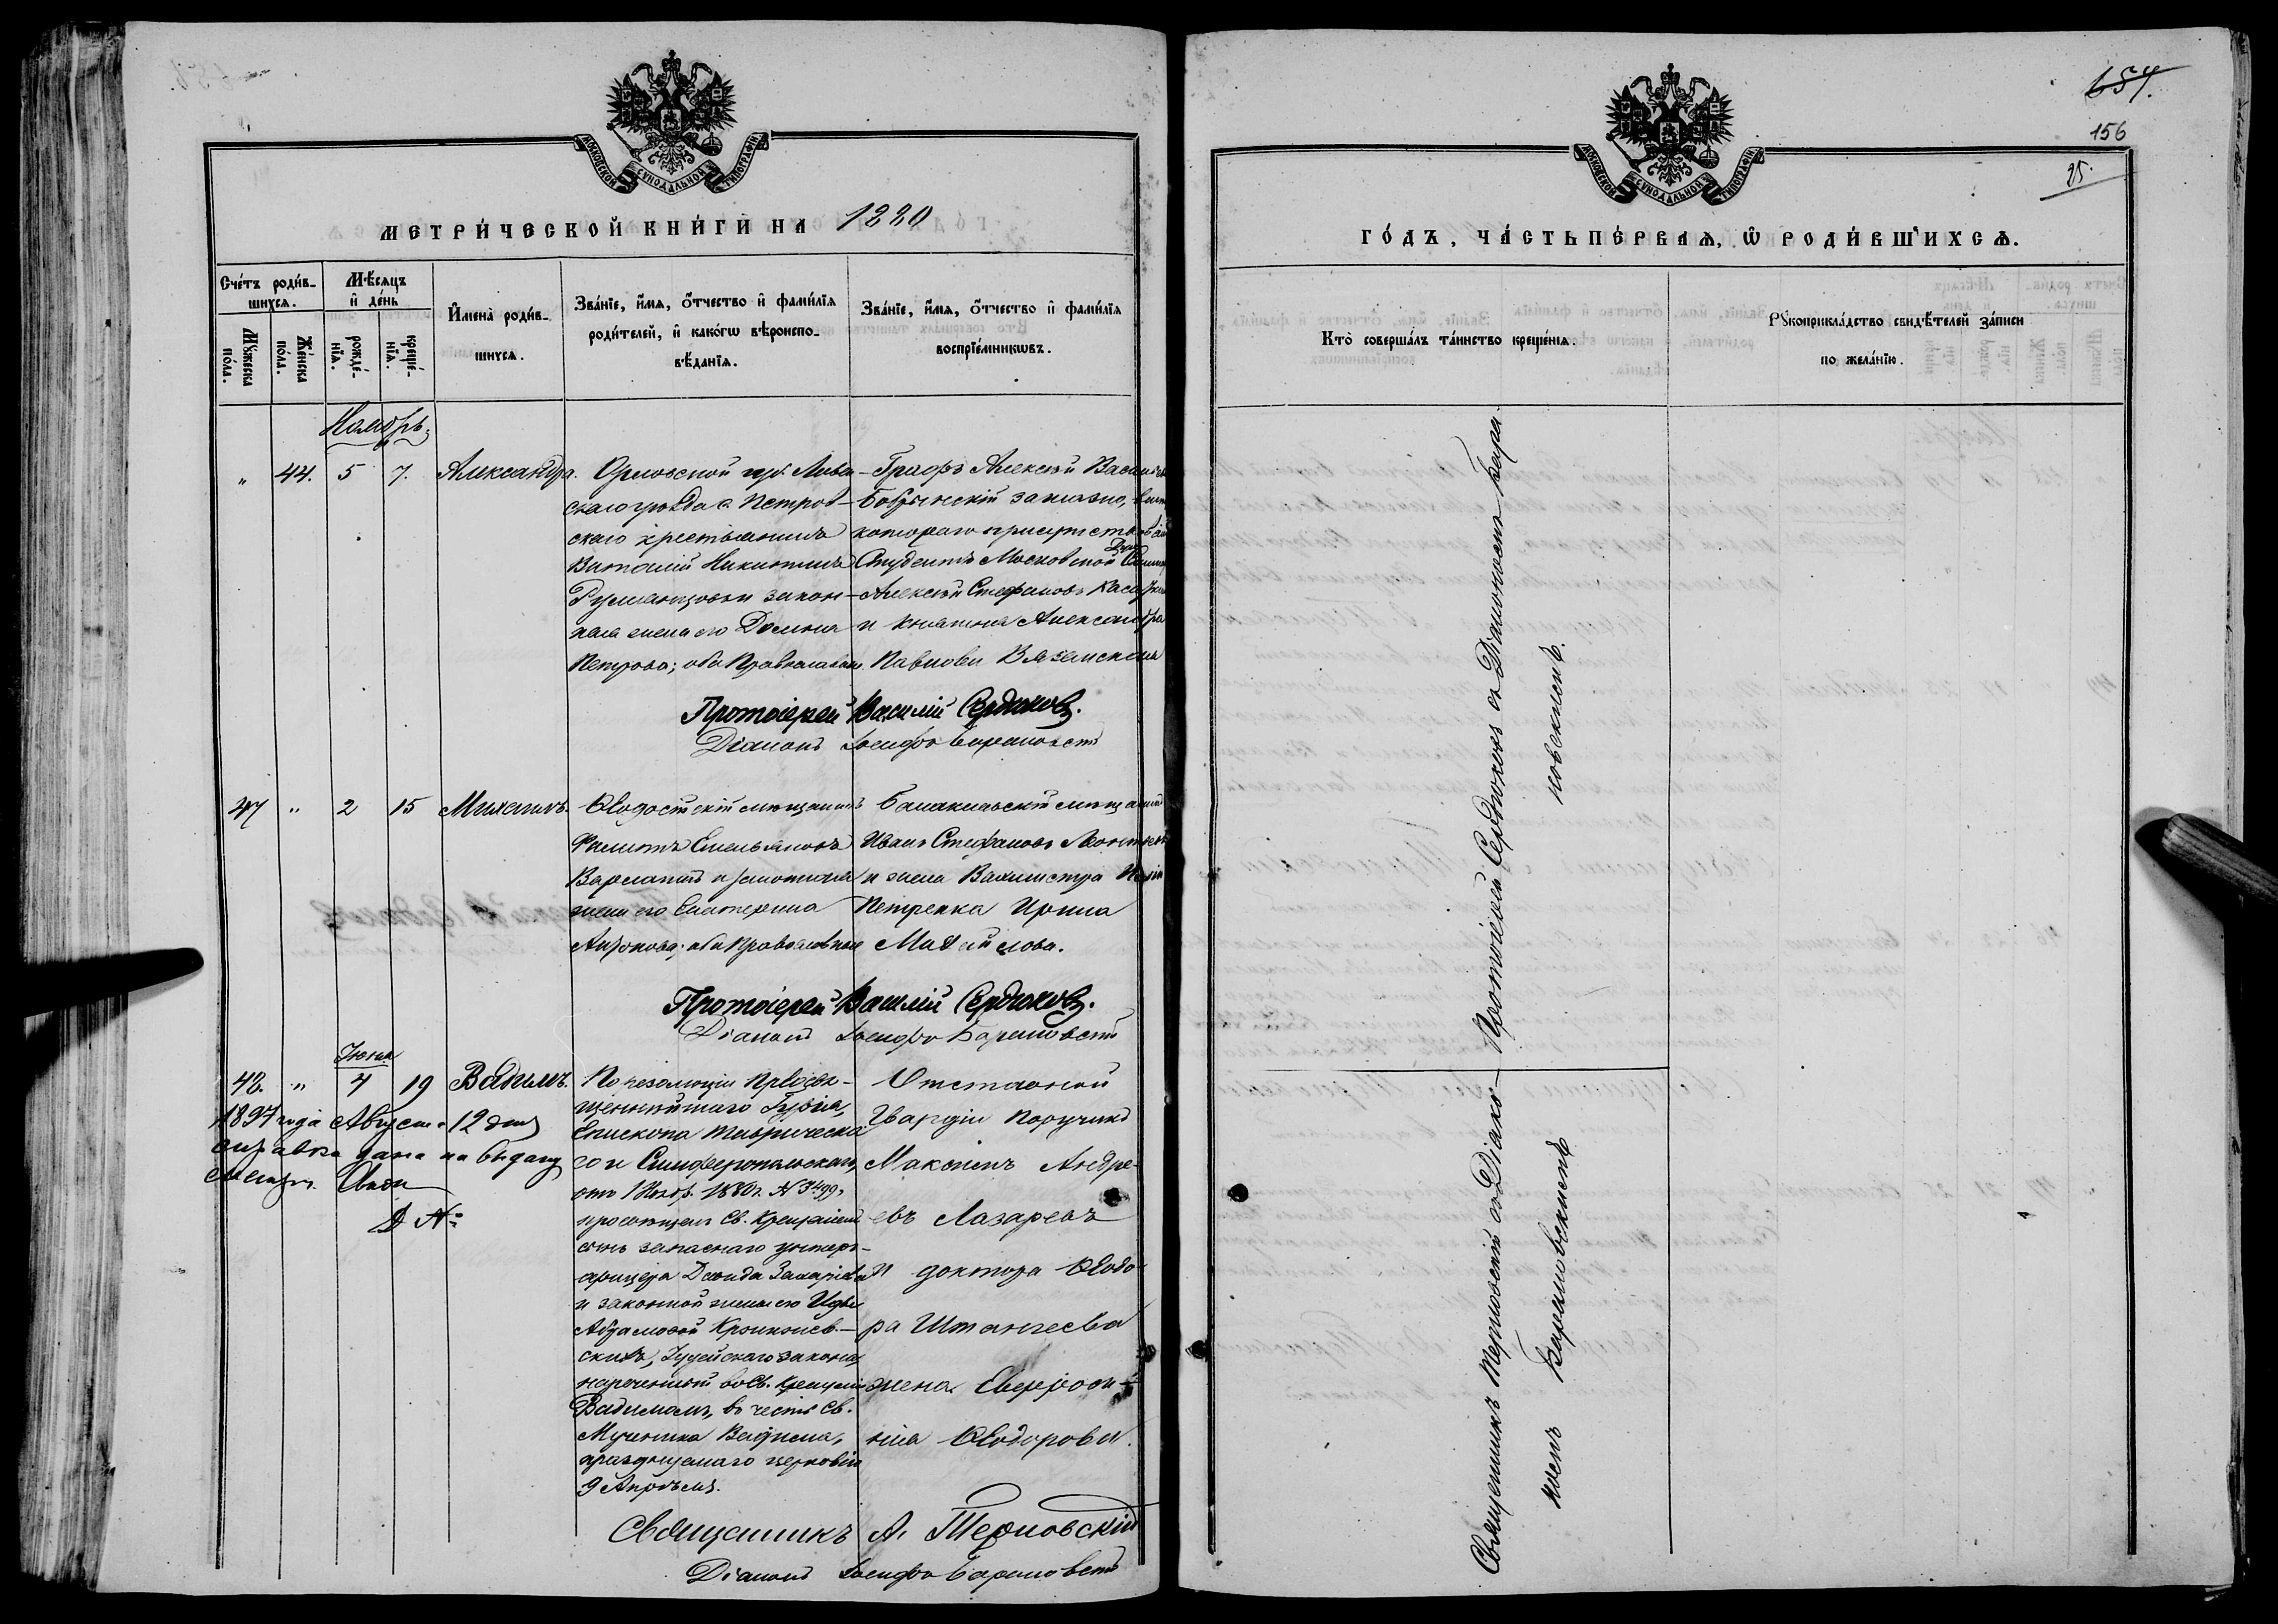 МОСКОВСКОЙ СѴНОДАЛЬНОЙ ТИПОГРАФІИ
МЕТРИ́ЧЕСКОЙ КНИ́ГИ НА 1880
Сче́тъ роди́в-
шихсѧ.
Мѣ́сѧцъ
и҆ де́нь
Мꙋ́жеска
по́ла.
Же́нска
по́ла.
рожде́-
нїѧ.
креще́-
нїѧ.
И҆мена̀ роди́в-
шихсѧ.
Зва́нїе, и҆́мѧ, ѻ҆́тчество и҆ фами́лїѧ
роди́телей, и҆ како́гѡ вѣроиспо-
вѣ́данїѧ.
Зва́нїе, и҆́мѧ, ѻ҆́тчество и҆ фами́лїѧ
воспрїе́мникѡвъ.
Ноябрь
" 44. 5 7. Александра.
Орловской губ. Ливен-
скаго уѣзда с. Петров-
скаго крестьянинъ
Виталій Никитинъ
Румянцовъ и закон-
ная жена его Домна
Петрова; оба Православн.
Графъ Алексѣй Василь
Бобринскій заглазно,
котораго присутствова
Студентъ Московской Дух.
Алексѣй Стефановъ
и княгиня Александра
Павлова Вяземская
Протоіерей Василій Сердюковъ.
Діаконъ Іосифъ Барановскій
47 " 2 15 Михаилъ.
Ѳеодосійскій мѣщанинъ
Филиппъ Емельяновъ
жена его Екатерина
оба Православные
Балаклавскій мѣщанинъ
Иванъ Стефановъ
и жена Вахмистра
Петренка Ирина
Михайлова.
Протоіерей Василій Сердюковъ.
Діаконъ Іосифъ Барановскій
Іюня
48. " 4 19 Вадимъ.
1897 года Августа 12 дня
справка дана на выдачу
Метрич. Свид.
Д. №
По резолюціи Преосвя-
щеннѣйшаго Гурія,
Епископа Таврическа
го и Симферопольскаго,
отъ 1 Нояб. 1880 г. № 3499,
просвѣщенъ Св. Крещеніемъ
сынъ запаснаго унтеръ-
офицера Давида Захаріева
и законной жены его Иды
Абрамовой
скихъ, Іудейскаго закона,
нареченный во Св. Крещеніи
Вадимомъ, въ честь Св.
Мученика Вадима,
празднуемаго церковію
9 Апрѣля.
Отставной
Гвардіи Поручикъ
Максимъ Андре-
евъ Лазаревъ
и доктора Ѳеодо-
ра Штангеева
жена Евфроси-
нія Ѳеодорова.
Священникъ А. Терновскій
Діаконъ Іосифъ Барановскій
654.
156
25.
МОСКОВСКОЙ СѴНОДАЛЬНОЙ ТИПОГРАФІИ
ГО́ДЪ, ЧА́СТЬ ПЕ́РВАѦ, Ѽ РОДИ́ВШИХСѦ.
Кто̀ соверша́лъ та́инство креще́нїѧ.
Рꙋкоприкла́дство свидѣ́телей за́писи
по жела́нїю.
Протоіерей Сердюковъ съ Діакономъ Бара-
новскимъ.
Священникъ Терновскій съ Діако-
номъ Барановскимъ